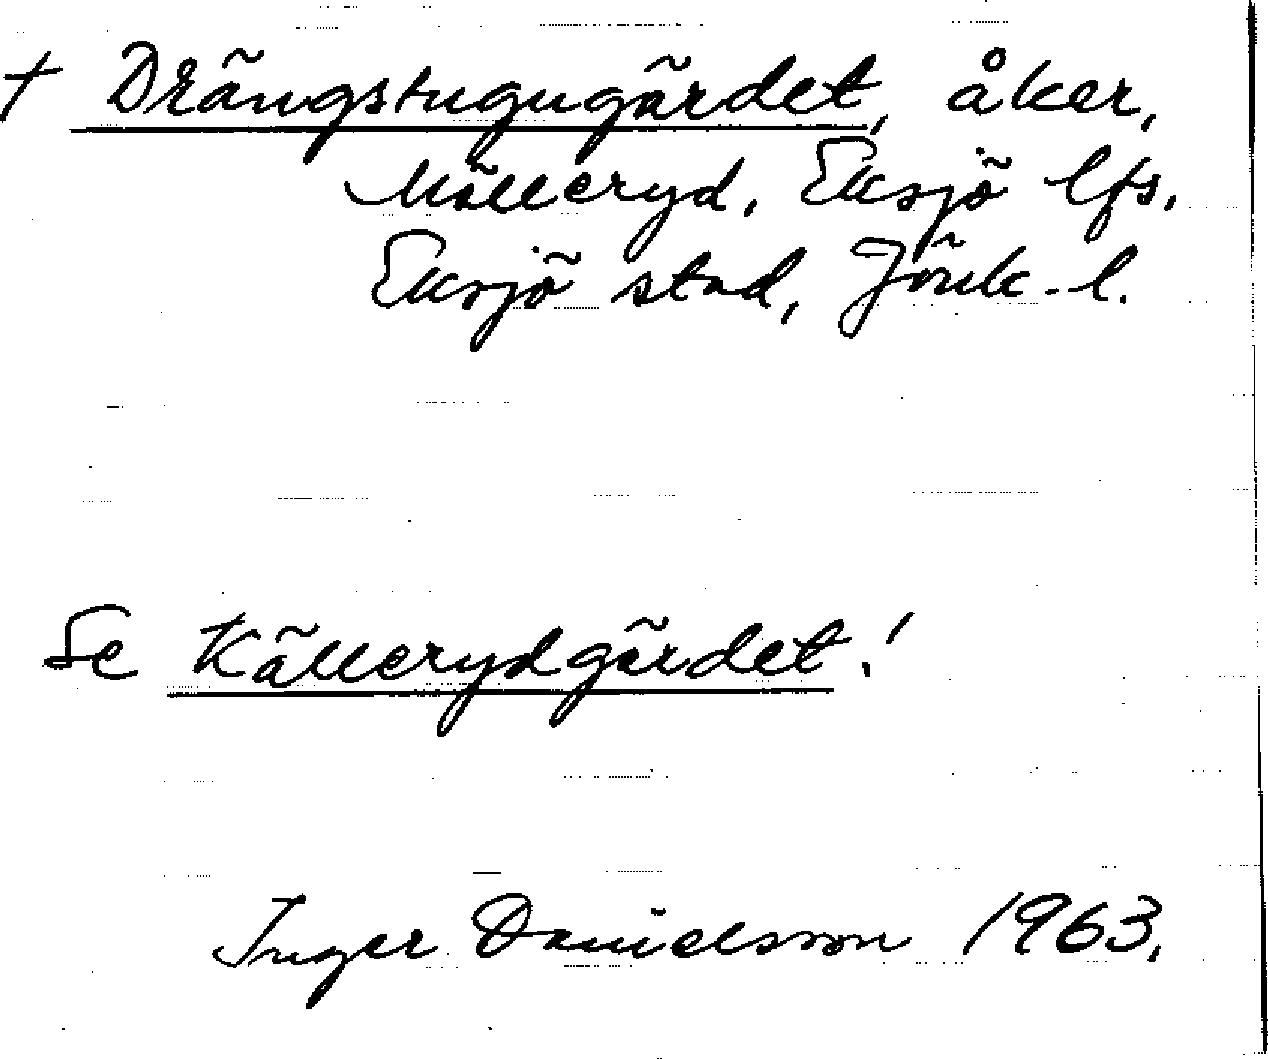 † Drängstugugärdet, åker,
Mölleryd, Eksjö lfs,
Eksjö stad, Jönk. l.
Se Källerydgärdet!
Inger Danielsson 1963.